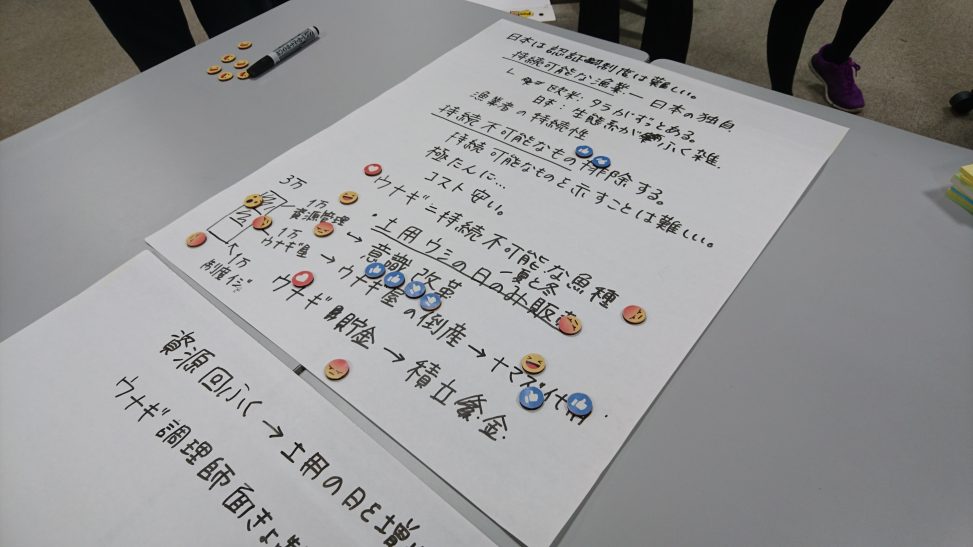 日本は認証制度は難しい。
持続可能な漁業 ― 日本の独自
欧米: タラがずっとある。
日本: 生態系がふく雑.
漁業者の持続性
持続不可能なもの排除する。
持続可能なものと示すことは難しい。
極たんに…
コスト安い。
ウナギ=持続不可能な魚種
・土用ウシの日のみ販売
夏 冬
→ 意識改革
→ ウナギ屋の倒産 → ナマズ代用
ウナギ貯金 → 積立金.
3万
1万
資源管理
1万
ウナギ屋
1万
資源回ふく → 土用の日を増
ウナギ調理師面